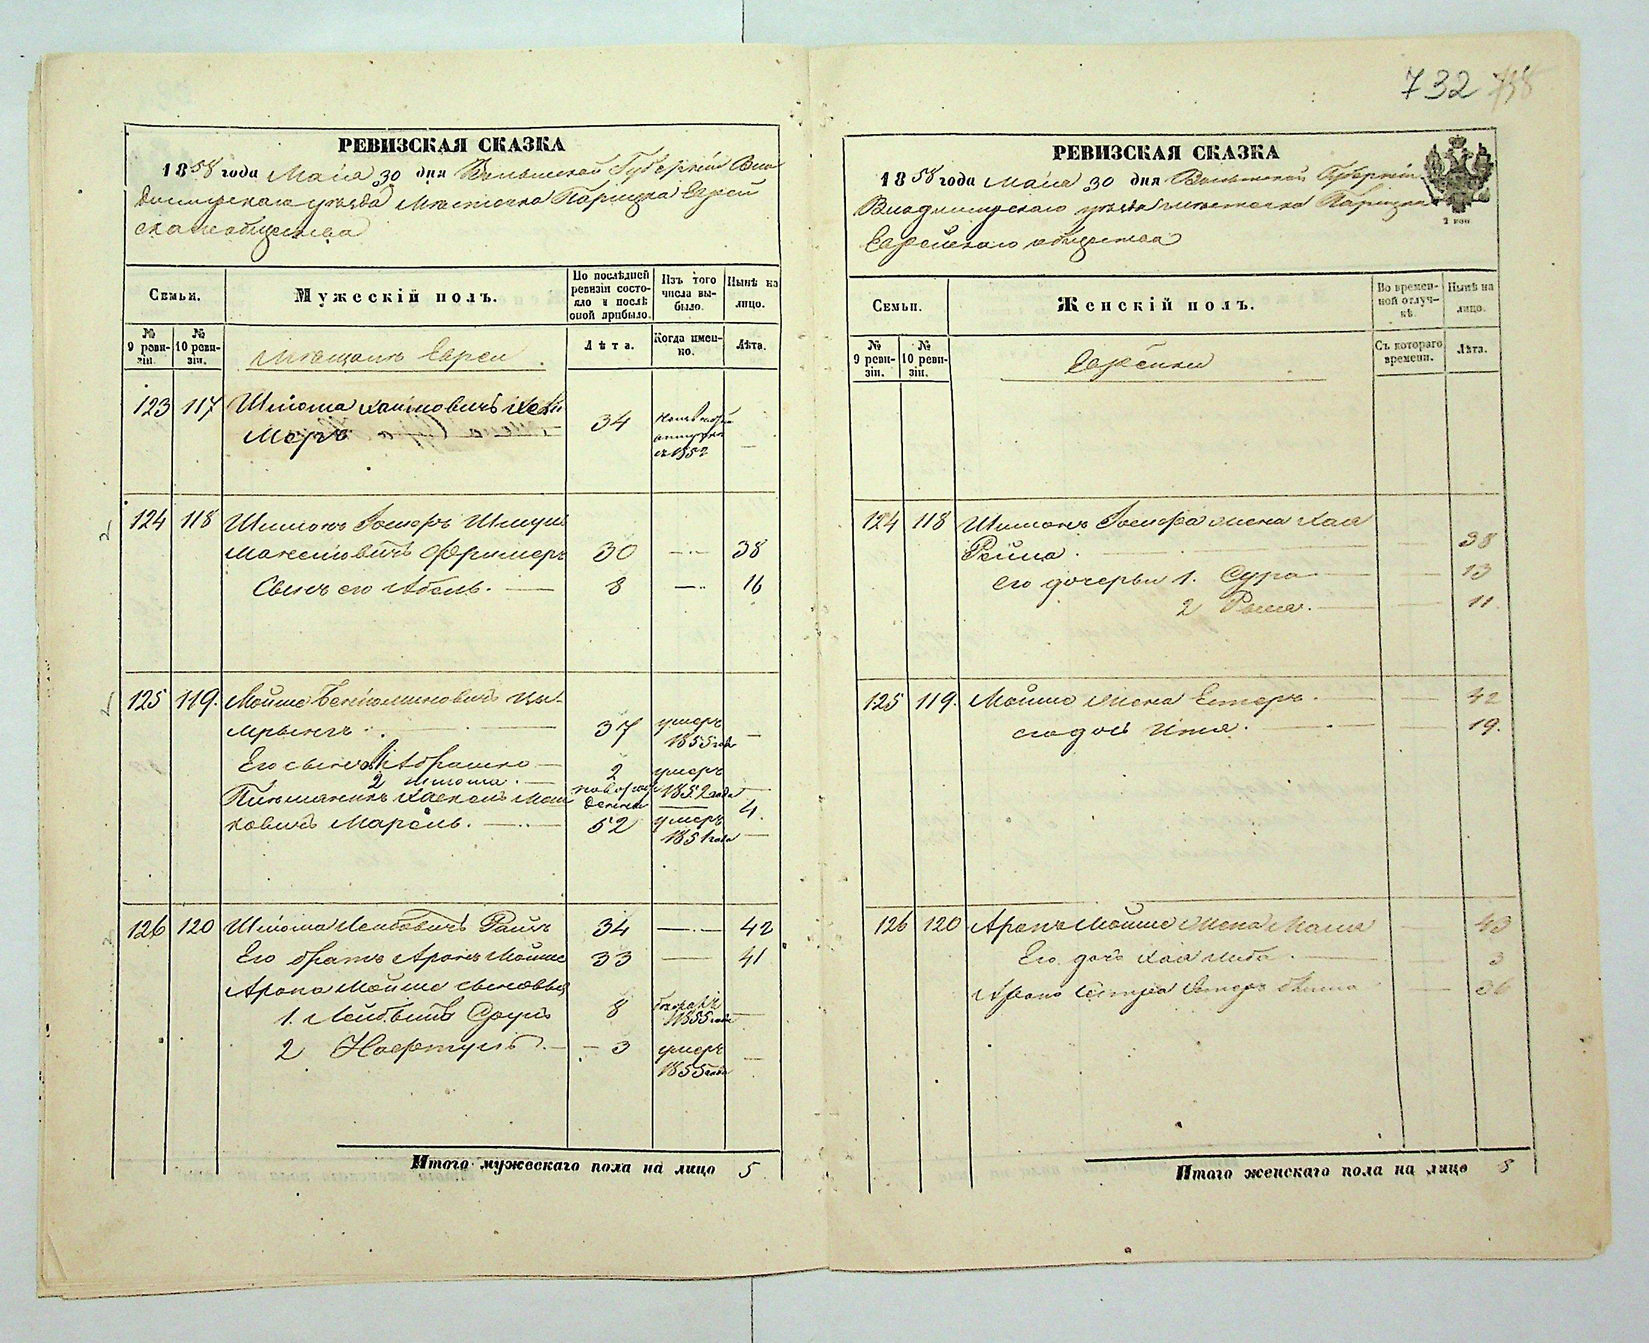 732 738
РЕВИЗСКАЯ СКАЗКА
1858 года Маія 30 дня Волынской Губерніи Вла
димірскаго уѣзда мѣстечка Порицка Еврей
скаго общества
Семьи.
Мужескій полъ.
По послѣдней ревизіи состояло и послѣ оной прибыло.
Изъ того числа выбыло.
Нынѣ на лицо.
№ 9 ревизіи.
№ 10 ревизіи.
Мѣщане Евреи
Лѣта.
Когда именно.
Лѣта.
123 117 Шлiома Хаимовичъ
Меръ 34
съ 1852
124 118 Шимонъ Іосифъ Шмуль
Максимовичъ 30 38
Сынъ его Абель. 8 16
125 119. Мойше Бенiоминовичъ
37 умеръ
1855 года
Его сынъ Абрашко 2 умеръ
2 Шлiома. новорож 1852 года
денный 4.
ковичъ Марель. 52 умеръ
1851 года
126 120 Шлiома Лейбовичъ Райзъ 34 42
Его братъ Аронъ Мойше 33 41
Арона Мойше сыновья
1. Лейбишъ Сруль 8
1855 года
2 Нафтуль 3 умеръ
1855 года
Итого мужескаго пола на лицо 5
РЕВИЗСКАЯ СКАЗКА
1858 года Маія 30 дня Волынской Губерніи
Владимірскаго уѣзда мѣстечка Порицка
Еврейскаго общества
Семьи.
Женскій полъ.
Во временной отлучкѣ.
Нынѣ на лицо.
№ 9 ревизіи.
№ 10 ревизіи.
Еврейки
Съ котораго времени.
Лѣта.
124 118 Шимонъ Іосифа жена Хая
Рейза. 38
его дочерьи 1. Сура 13
2 11
125 119. Мойше жена Естеръ. 42
его дочь Итя. 19.
126 120 Аронъ Мойше жена Маля 43
Его дочь Хая Либа. 3
Арона сестра 36
Итого женскаго пола на лицо 8